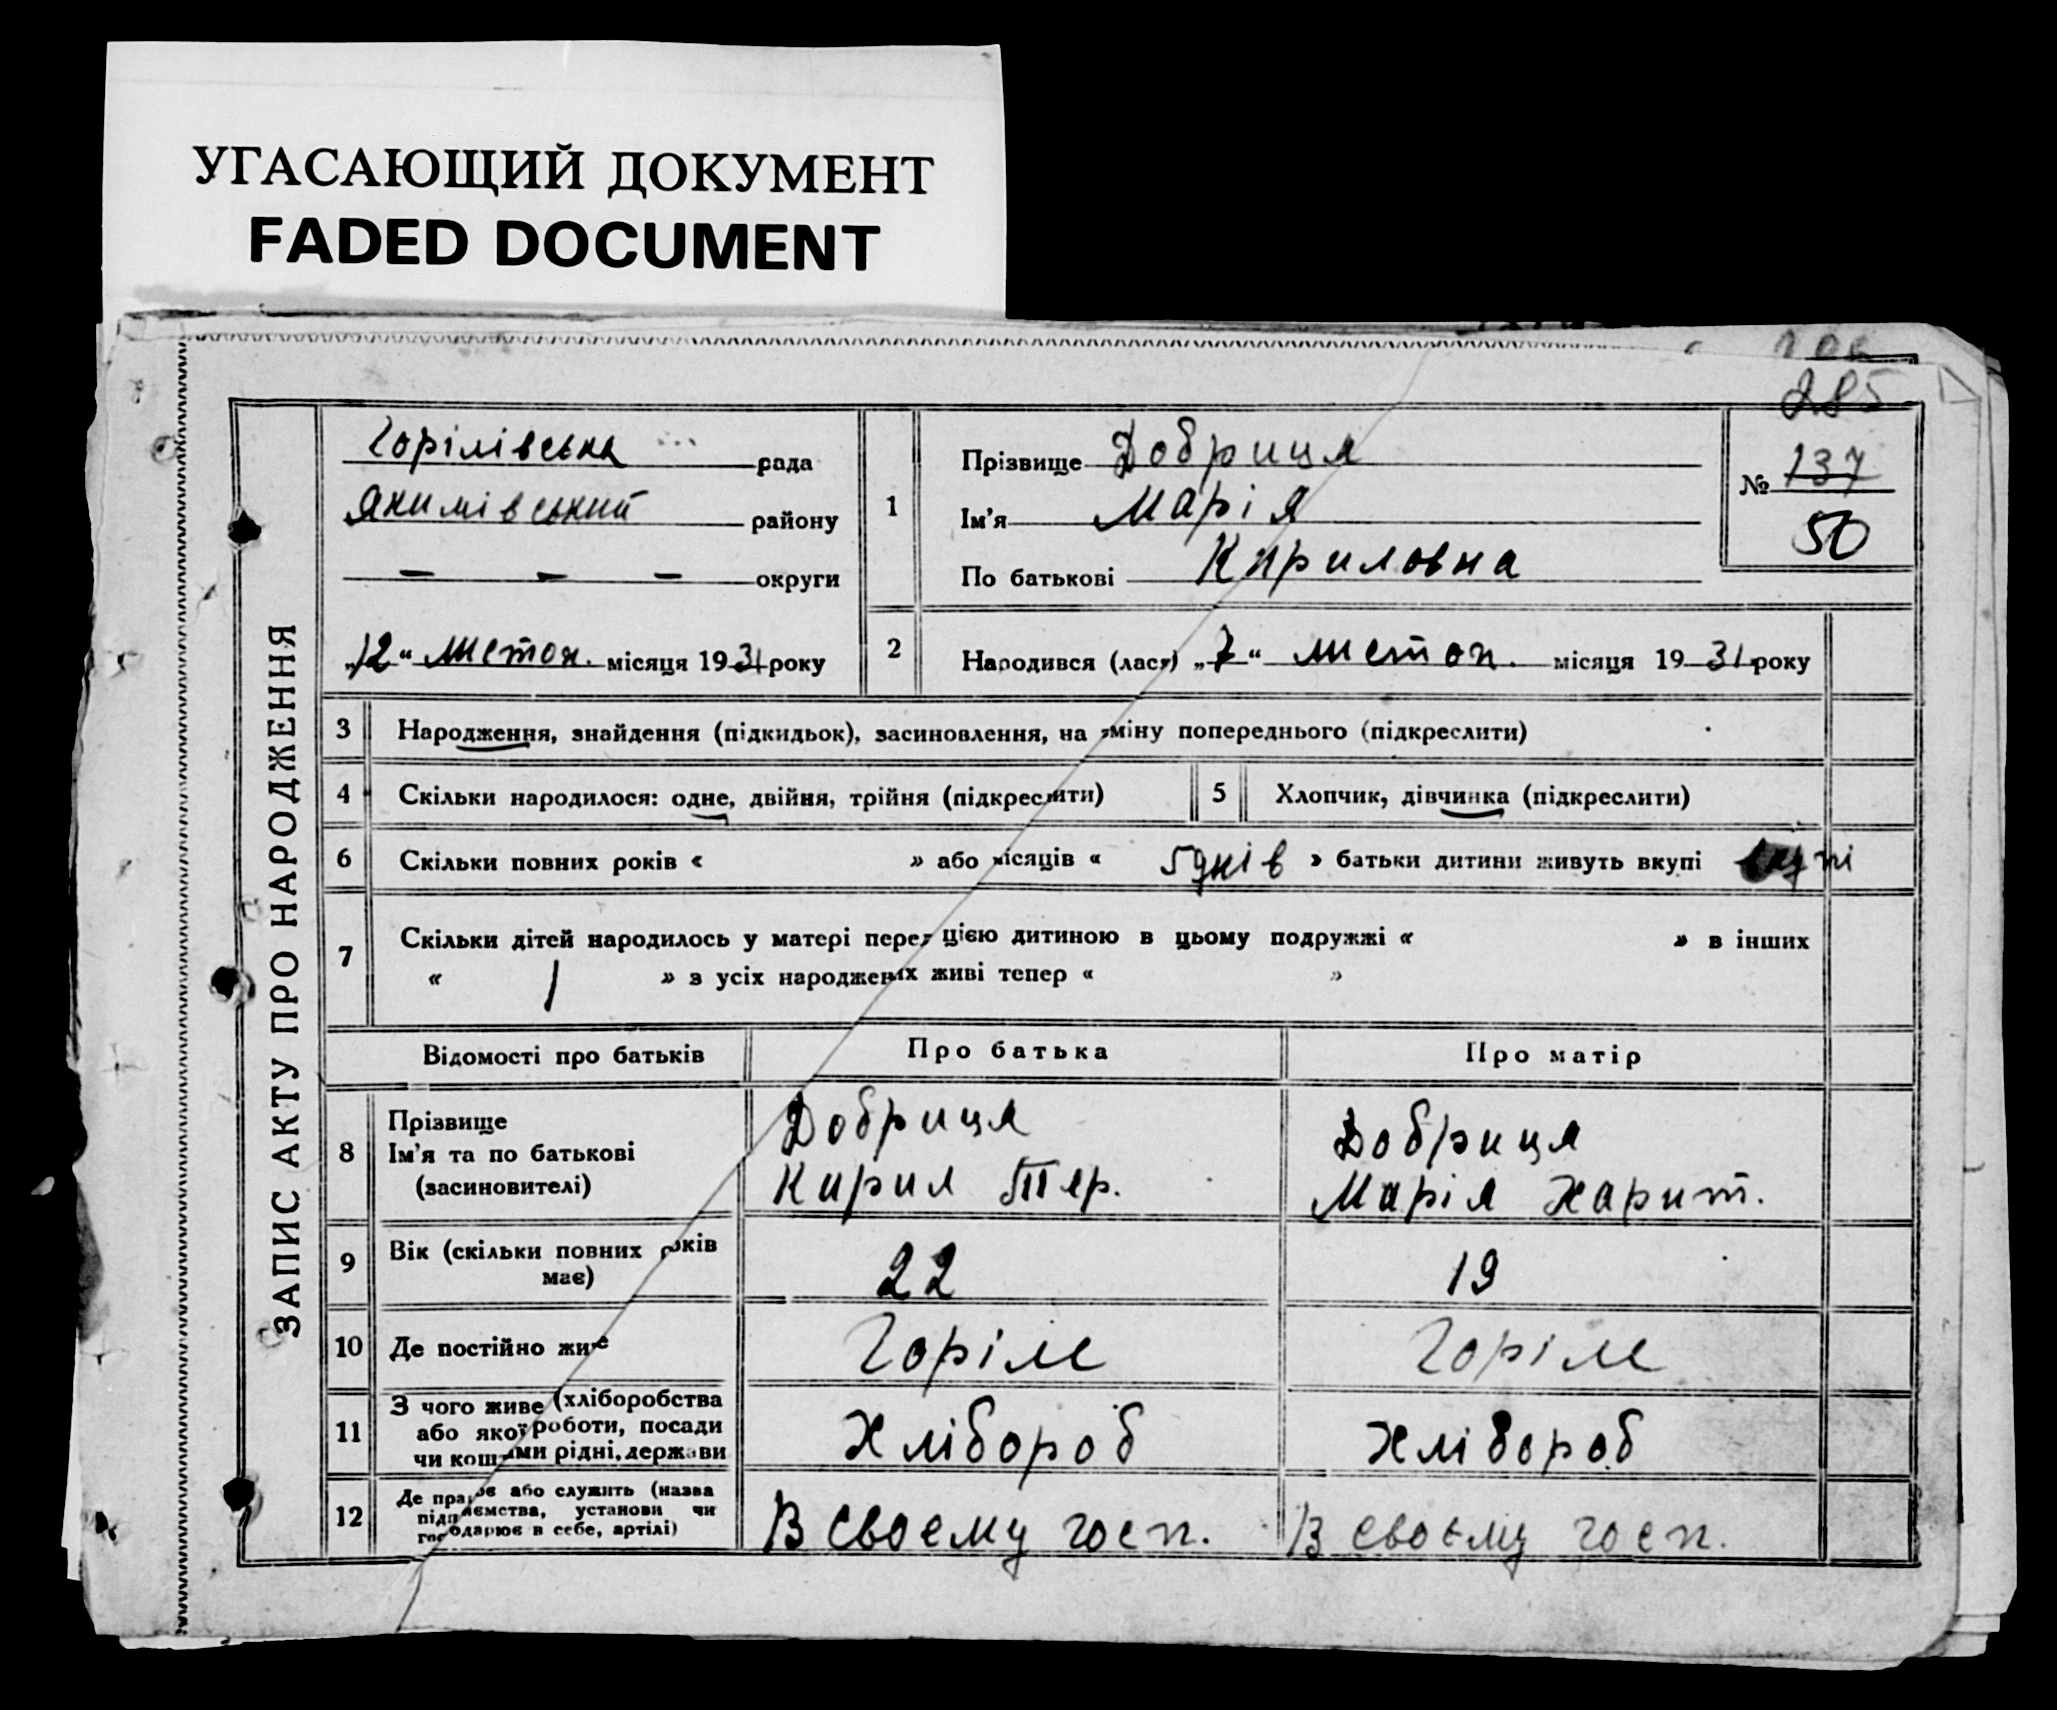 УГАСАЮЩИЙ ДОКУМЕНТ
FADED DOCUMENT
285
ЗАПИС АКТУ ПРО НАРОДЖЕННЯ
Горілівська рада
Якимівський району
— — — округи
„12“ листоп. місяця 1931 року
1
Прізвище Добриця
Ім'я Марія
По батькові Кириловна
№ 137
50
2 Народився (лася) „7“ листоп. місяця 1931 року
3 Народження, знайдення (підкидьок), засиновлення, на зміну попереднього (підкреслити)
4 Скільки народилося: одне, двійня, трійня (підкреслити)
5 Хлопчик, дівчинка (підкреслити)
6 Скільки повних років « » або місяців « 5 днів » батьки дитини живуть вкупі вкупі
7 Скільки дітей народилось у матері перед цією дитиною в цьому подружжі « » в інших
« 1 » з усіх народжених живі тепер « »
Відомості про батьків Про батька Про матір
8 Прізвище
Ім'я та по батькові
(засиновителі)
Добриця
Кирил Тер.
Добриця
Марія Харит.
9 Вік (скільки повних років
має)
22
19
10 Де постійно живе
Горіле
Горіле
11 З чого живе (хліборобства
або якої роботи, посади
чи коштами рідні, держави
Хлібороб
Хлібороб
12 Де працює або служить (назва
підприємства, установи чи
господарює в себе, артілі)
В своєму госп.
В своєму госп.